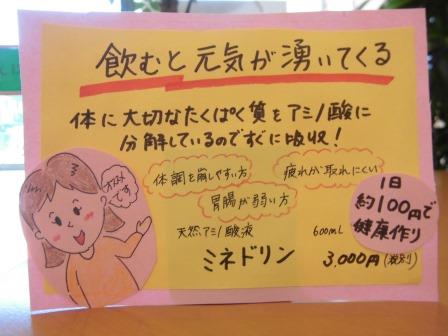 飲むと元気が湧いてくる
体に大切なたくぱく質をアミノ酸に
分解しているのですぐに吸収！
体調を崩しやすい方
疲れが取れにくい
胃腸が弱い方
おススメ
です
1日
約100円で
健康作り
天然アミノ酸液
600mL
ミネドリン
3,000円(税別)